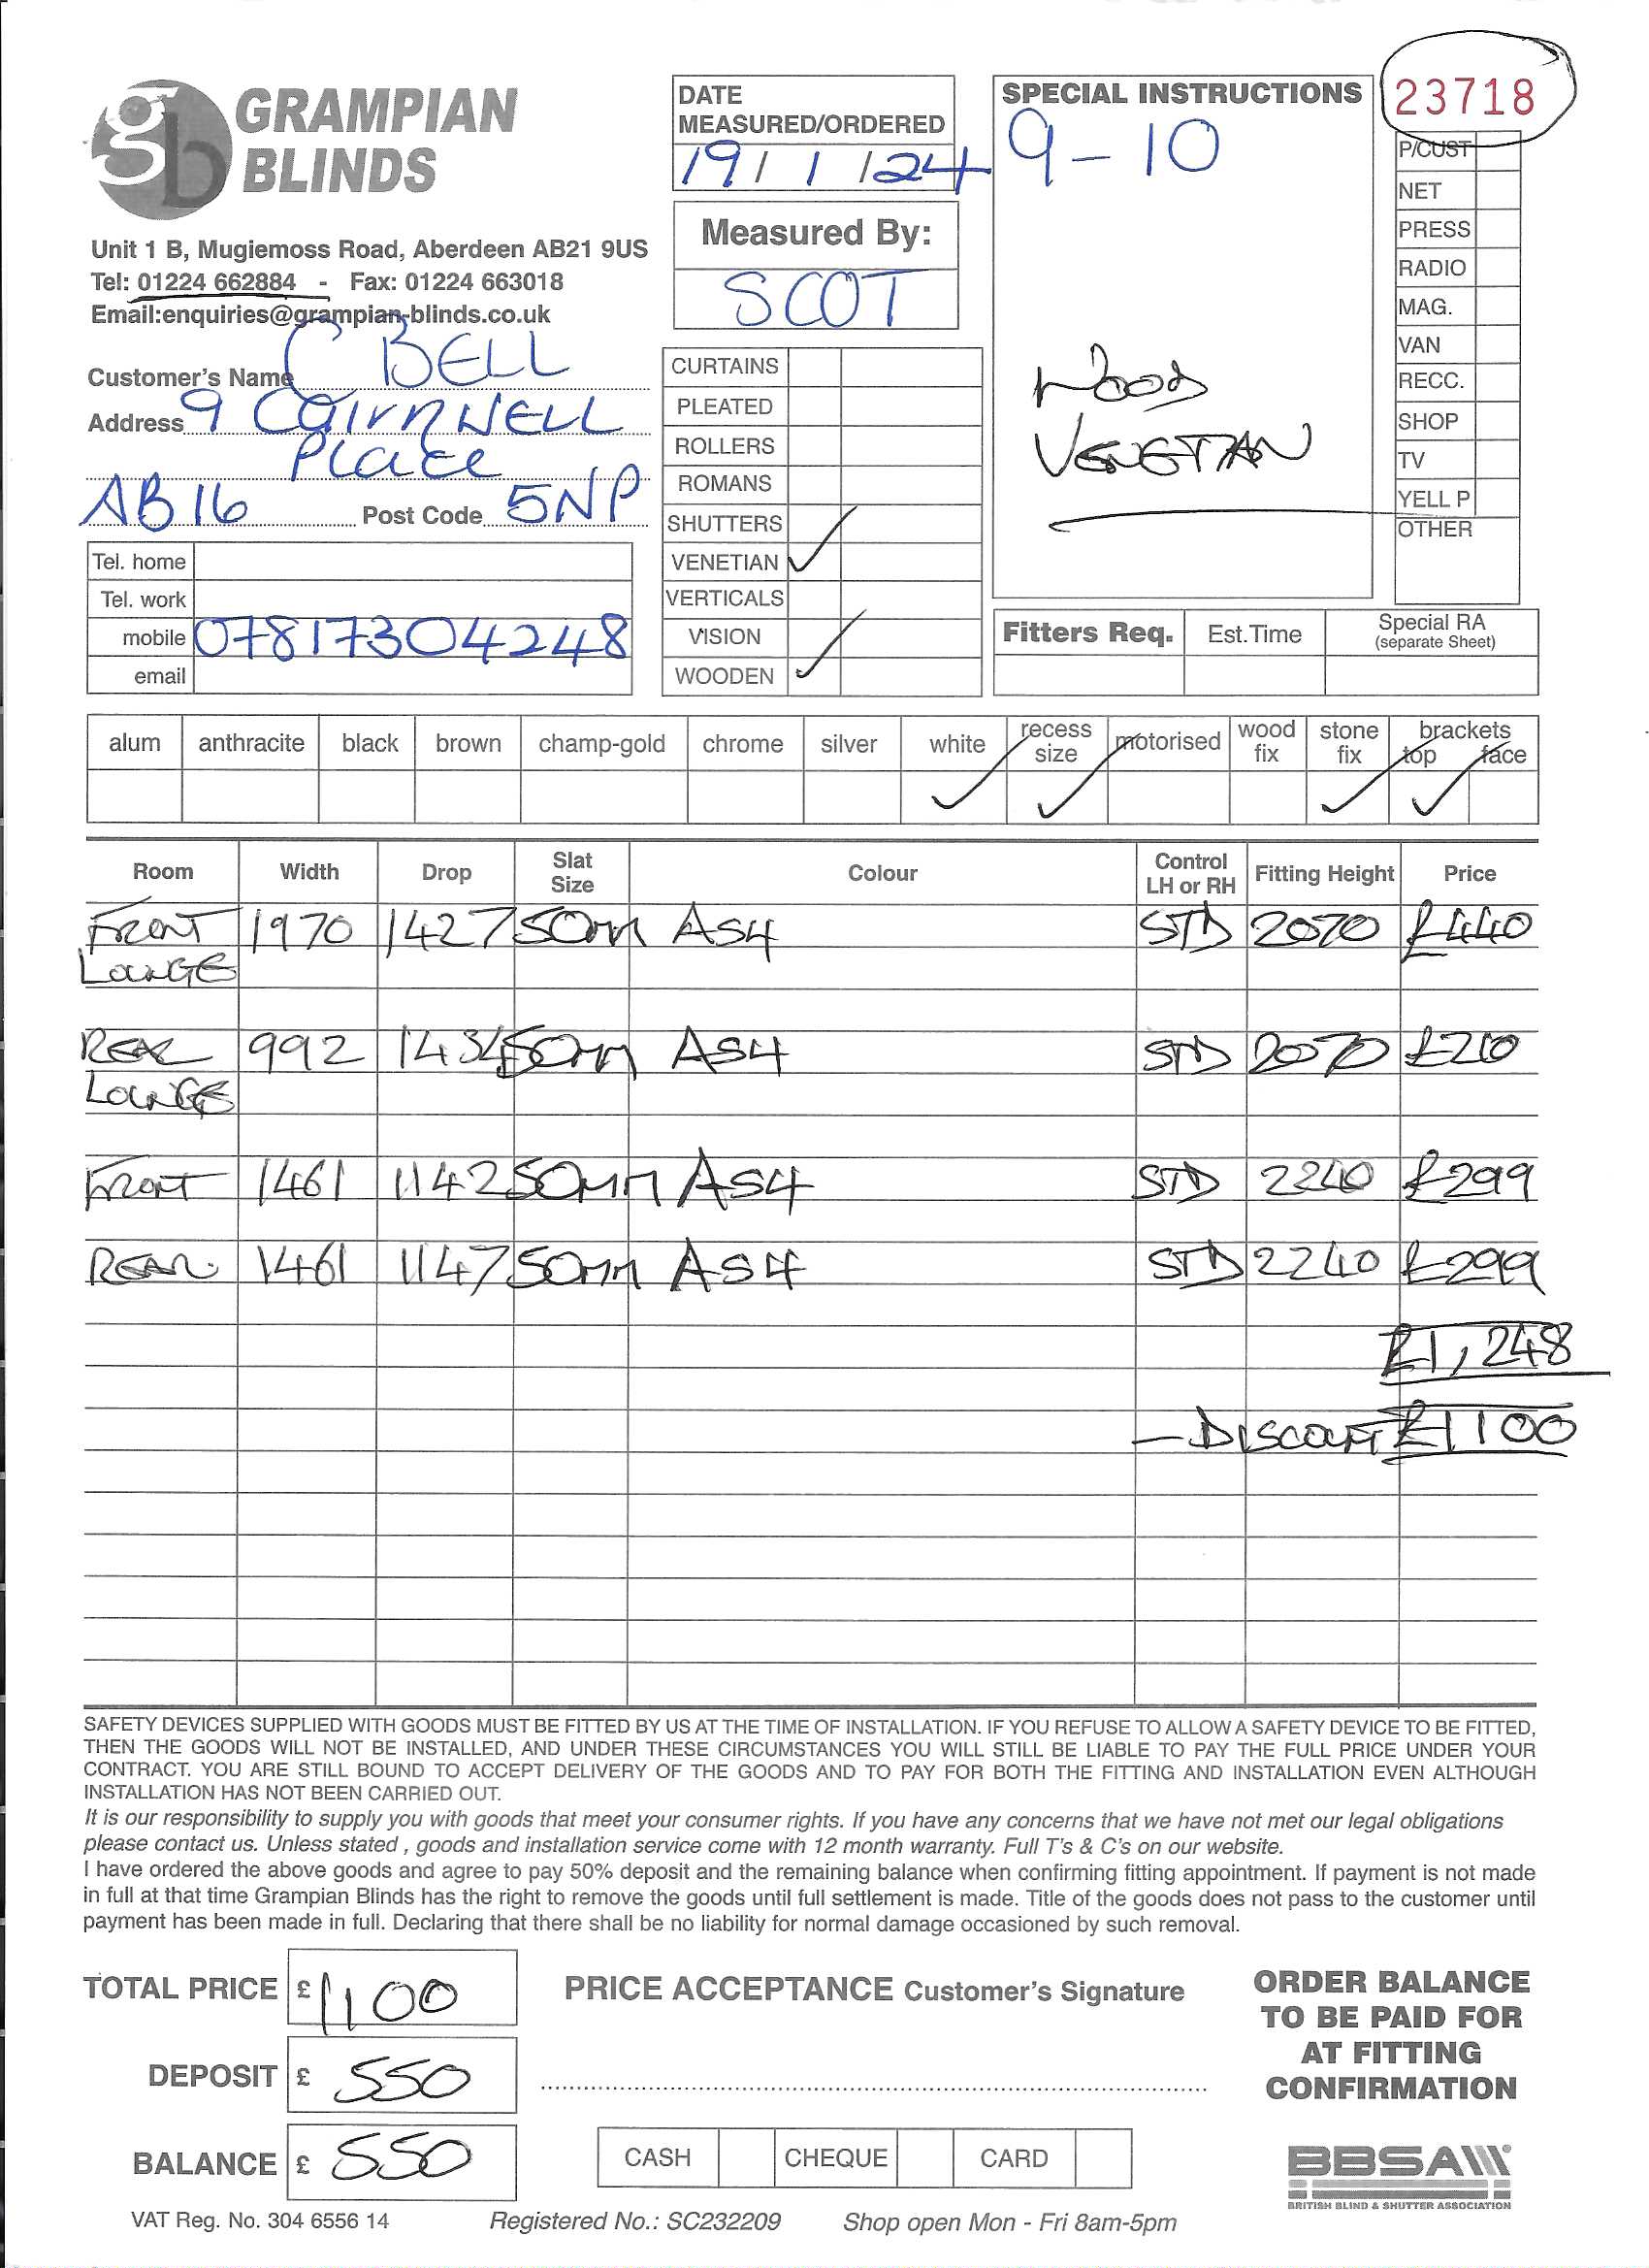 GRAMPIAN
BLINDS
Unit 1 B, Mugiemoss Road, Aberdeen AB21 9US
Tel: 01224 662884 - Fax: 01224 663018
Email:enquiries@grampian-blinds.co.uk
DATE
MEASURED/ORDERED
19/1/24
Measured By:
SCOT
SPECIAL INSTRUCTIONS
9-10
Wood
VENETIAN
23718
P/CUST
NET
PRESS
RADIO
MAG.
VAN
RECC.
SHOP
TV
YELL P
OTHER
Customer's Name C BELL
Address 9 CairnWELL
Place
AB16 Post Code 5NP
Tel. home
Tel. work
mobile 07817304248
email
CURTAINS
PLEATED
ROLLERS
ROMANS
SHUTTERS
VENETIAN ✓
VERTICALS
VISION
WOODEN ✓
Fitters Req. Est.Time Special RA
(separate Sheet)
alum anthracite black brown champ-gold chrome silver white recess size motorised wood fix stone fix brackets top face
✓ ✓ ✓ ✓
Room Width Drop Slat Size Colour Control LH or RH Fitting Height Price
FRONT 1970 1427 50mm AS4 STD 2070 £440
LOUNGE
REAR 992 1434 50mm AS4 STD 2070 £210
LOUNGE
FRONT 1461 1142 50mm AS4 STD 2240 £299
REAR 1461 1147 50mm AS4 STD 2240 £299
£1,248
- DISCOUNT £1100
SAFETY DEVICES SUPPLIED WITH GOODS MUST BE FITTED BY US AT THE TIME OF INSTALLATION. IF YOU REFUSE TO ALLOW A SAFETY DEVICE TO BE FITTED,
THEN THE GOODS WILL NOT BE INSTALLED, AND UNDER THESE CIRCUMSTANCES YOU WILL STILL BE LIABLE TO PAY THE FULL PRICE UNDER YOUR
CONTRACT. YOU ARE STILL BOUND TO ACCEPT DELIVERY OF THE GOODS AND TO PAY FOR BOTH THE FITTING AND INSTALLATION EVEN ALTHOUGH
INSTALLATION HAS NOT BEEN CARRIED OUT.
It is our responsibility to supply you with goods that meet your consumer rights. If you have any concerns that we have not met our legal obligations
please contact us. Unless stated , goods and installation service come with 12 month warranty. Full T's & C's on our website.
I have ordered the above goods and agree to pay 50% deposit and the remaining balance when confirming fitting appointment. If payment is not made
in full at that time Grampian Blinds has the right to remove the goods until full settlement is made. Title of the goods does not pass to the customer until
payment has been made in full. Declaring that there shall be no liability for normal damage occasioned by such removal.
TOTAL PRICE £ 1100
DEPOSIT £ 550
BALANCE £ 550
PRICE ACCEPTANCE Customer's Signature
CASH CHEQUE CARD
ORDER BALANCE
TO BE PAID FOR
AT FITTING
CONFIRMATION
BBSA
BRITISH BLIND & SHUTTER ASSOCIATION
VAT Reg. No. 304 6556 14 Registered No.: SC232209 Shop open Mon - Fri 8am-5pm